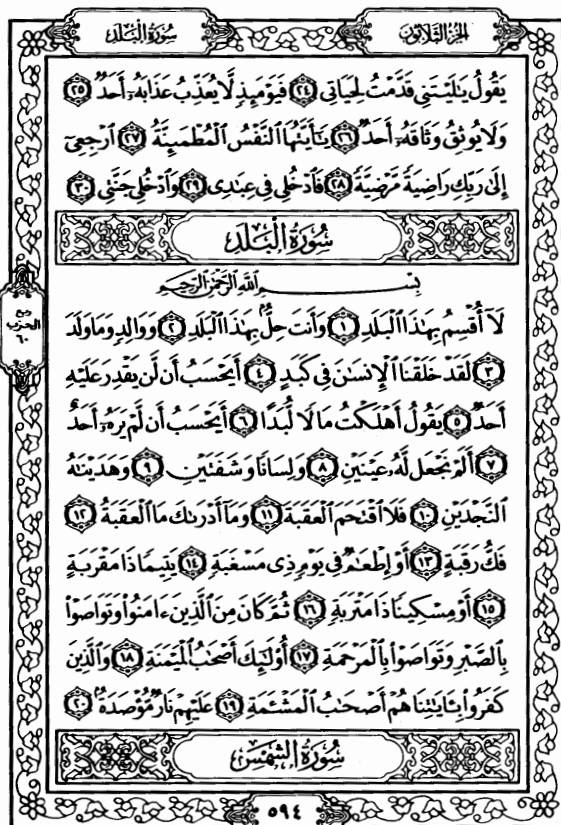 الجزء الثلاثون
سورة البلد
يَقُولُ يَٰلَيْتَنِي قَدَّمْتُ لِحَيَاتِي ٢٤ فَيَوْمَئِذٖ لَّا يُعَذِّبُ عَذَابَهُۥٓ أَحَدٞ ٢٥
وَلَا يُوثِقُ وَثَاقَهُۥٓ أَحَدٞ ٢٦ يَٰٓأَيَّتُهَا ٱلنَّفْسُ ٱلْمُطْمَئِنَّةُ ٢٧ ٱرْجِعِيٓ
إِلَىٰ رَبِّكِ رَاضِيَةٗ مَّرْضِيَّةٗ ٢٨ فَٱدْخُلِي فِي عِبَٰدِي ٢٩ وَٱدْخُلِي جَنَّتِي ٣٠
سُورَةُ الْبَلَدِ
بِسْمِ ٱللَّهِ ٱلرَّحْمَٰنِ ٱلرَّحِيمِ
لَآ أُقْسِمُ بِهَٰذَا ٱلْبَلَدِ ١ وَأَنتَ حِلُّۢ بِهَٰذَا ٱلْبَلَدِ ٢ وَوَالِدٖ وَمَا وَلَدَ
٣ لَقَدْ خَلَقْنَا ٱلْإِنسَٰنَ فِي كَبَدٍ ٤ أَيَحْسَبُ أَن لَّن يَقْدِرَ عَلَيْهِ
أَحَدٞ ٥ يَقُولُ أَهْلَكْتُ مَالٗا لُّبَدًا ٦ أَيَحْسَبُ أَن لَّمْ يَرَهُۥٓ أَحَدٌ
٧ أَلَمْ نَجْعَل لَّهُۥ عَيْنَيْنِ ٨ وَلِسَانٗا وَشَفَتَيْنِ ٩ وَهَدَيْنَٰهُ
ٱلنَّجْدَيْنِ ١٠ فَلَا ٱقْتَحَمَ ٱلْعَقَبَةَ ١١ وَمَآ أَدْرَىٰكَ مَا ٱلْعَقَبَةُ ١٢
فَكُّ رَقَبَةٍ ١٣ أَوْ إِطْعَٰمٞ فِي يَوْمٖ ذِي مَسْغَبَةٖ ١٤ يَتِيمٗا ذَا مَقْرَبَةٍ
١٥ أَوْ مِسْكِينٗا ذَا مَتْرَبَةٖ ١٦ ثُمَّ كَانَ مِنَ ٱلَّذِينَ ءَامَنُواْ وَتَوَاصَوْاْ
بِٱلصَّبْرِ وَتَوَاصَوْاْ بِٱلْمَرْحَمَةِ ١٧ أُوْلَٰٓئِكَ أَصْحَٰبُ ٱلْمَيْمَنَةِ ١٨ وَٱلَّذِينَ
كَفَرُواْ بِـَٔايَٰتِنَا هُمْ أَصْحَٰبُ ٱلْمَشْـَٔمَةِ ١٩ عَلَيْهِمْ نَارٞ مُّؤْصَدَةُۢ ٢٠
سُورَةُ الشَّمْسِ
ربع
الحزب
٦٠
٥٩٤